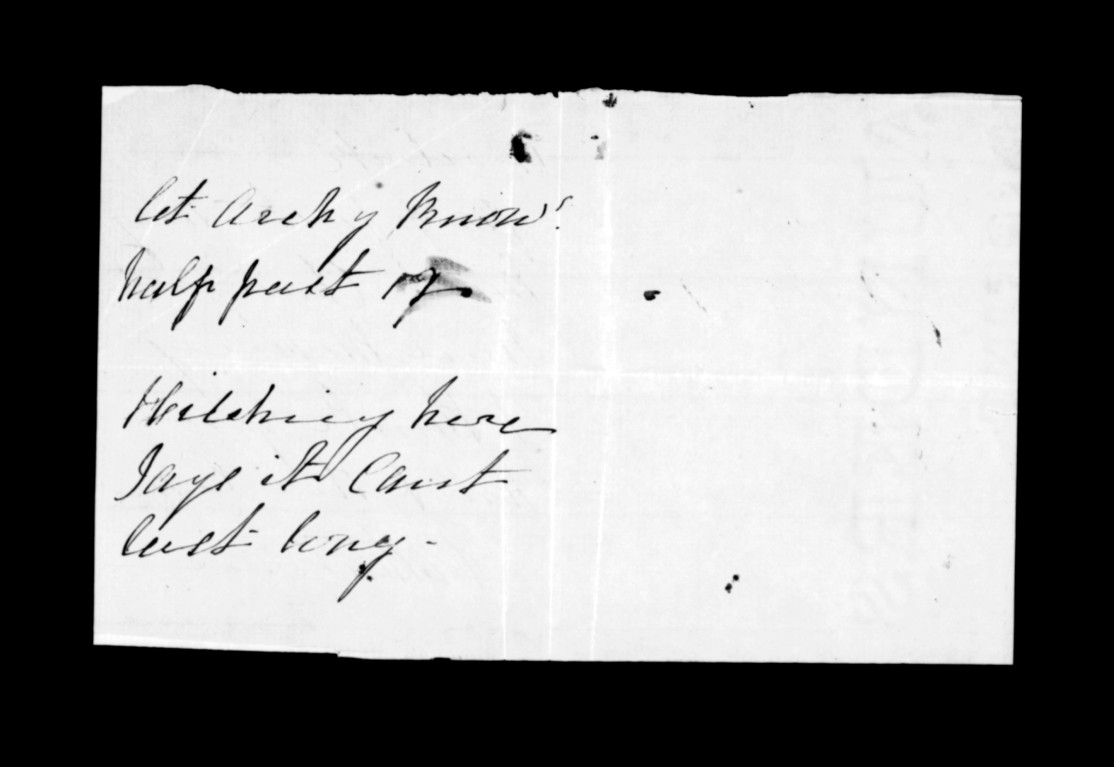 let Archy know
half past 12
Hitching here
says it Cant
last long -